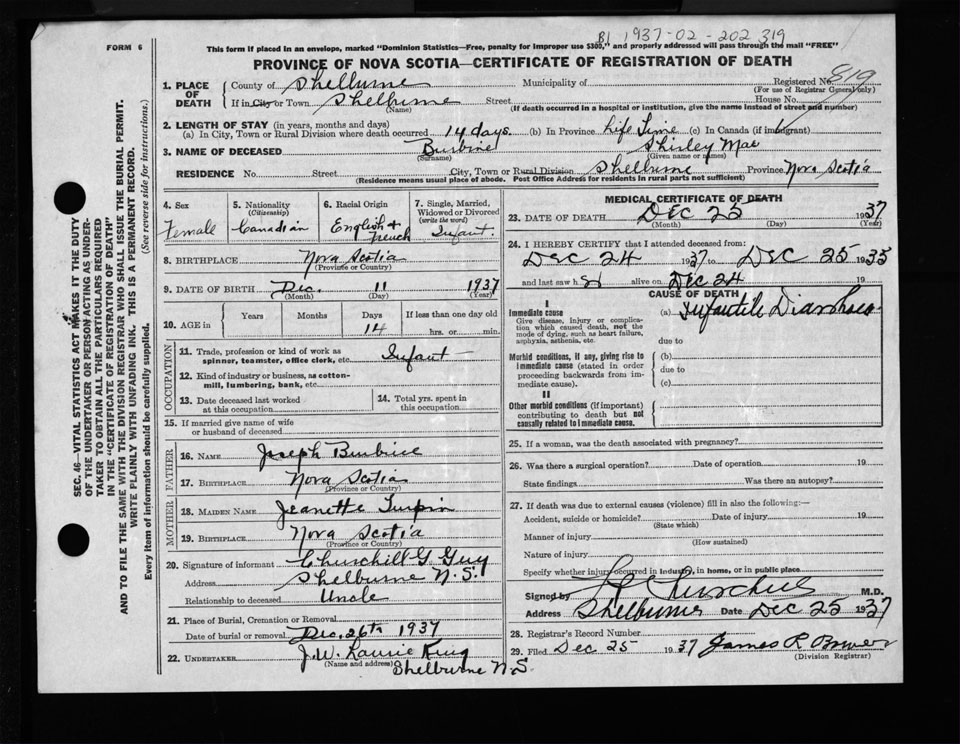 B1 1937-02-202 319
FORM 6
This form if placed in an envelope, marked "Dominion Statistics—Free, penalty for improper use $300," and properly addressed will pass through the mail "FREE"
PROVINCE OF NOVA SCOTIA—CERTIFICATE OF REGISTRATION OF DEATH
1. PLACE OF DEATH
County of Shelburne Municipality of Registered No. 819
(For use of Registrar General only)
If in City or Town Shelburne Street House No.
(Name) (If death occurred in a hospital or institution, give the name instead of street and number)
2. LENGTH OF STAY (in years, months and days)
(a) In City, Town or Rural Division where death occurred 14 days. (b) In Province Life Time (c) In Canada (if immigrant)
3. NAME OF DECEASED Burbine Shirley Mae
(Surname) (Given name or names)
RESIDENCE No. Street City, Town or Rural Division Shelburne Province Nova Scotia
(Residence means usual place of abode. Post Office Address for residents in rural parts not sufficient)
SEC. 46—VITAL STATISTICS ACT MAKES IT THE DUTY
OF THE UNDERTAKER OR PERSON ACTING AS UNDER-
TAKER TO OBTAIN ALL THE PARTICULARS REQUIRED
IN THE "CERTIFICATE OF REGISTRATION OF DEATH"
AND TO FILE THE SAME WITH THE DIVISION REGISTRAR WHO SHALL ISSUE THE BURIAL PERMIT.
WRITE PLAINLY WITH UNFADING INK. THIS IS A PERMANENT RECORD.
Every item of information should be carefully supplied. (See reverse side for instructions.)
4. Sex
Female
5. Nationality
(Citizenship)
Canadian
6. Racial Origin
English &
French
7. Single, Married,
Widowed or Divorced
(write the word)
Infant.
8. BIRTHPLACE Nova Scotia
(Province or Country)
9. DATE OF BIRTH Dec. 11 1937
(Month) (Day) (Year)
10. AGE in Years Months Days If less than one day old
14 hrs. or min.
OCCUPATION
11. Trade, profession or kind of work as Infant
spinner, teamster, office clerk, etc.
12. Kind of industry or business, as cotton-
mill, lumbering, bank, etc.
13. Date deceased last worked
at this occupation
14. Total yrs. spent in
this occupation
15. If married give name of wife
or husband of deceased
FATHER
16. NAME Joseph Burbine
17. BIRTHPLACE Nova Scotia
(Province or Country)
MOTHER
18. MAIDEN NAME Jeanette Turpin
19. BIRTHPLACE Nova Scotia
(Province or Country)
20. Signature of informant Churchill G Guy
Address Shelburne N.S.
Relationship to deceased Uncle
21. Place of Burial, Cremation or Removal
Date of burial or removal Dec. 26th 1937
22. UNDERTAKER J.W. Laurie King
(Name and address) Shelburne N.S.
MEDICAL CERTIFICATE OF DEATH
23. DATE OF DEATH DEC 25 1937
(Month) (Day) (Year)
24. I HEREBY CERTIFY that I attended deceased from:
Dec 24 1937 to Dec 25 1935
and last saw h alive on Dec 24 19
CAUSE OF DEATH
I
Immediate cause
Give disease, injury or compli-
cation which caused death, not the
mode of dying, such as heart failure,
asphyxia, asthenia, etc.
(a) Infantile Diarrhoea
due to
Morbid conditions, if any, giving rise to
immediate cause (stated in order
proceeding backwards from im-
mediate cause).
(b)
due to
(c)
II
Other morbid conditions (if important)
contributing to death but not
causally related to immediate cause.
25. If a woman, was the death associated with pregnancy?
26. Was there a surgical operation? Date of operation 19
State findings Was there an autopsy?
27. If death was due to external causes (violence) fill in also the following:—
Accident, suicide or homicide? Date of injury 19
(State which)
Manner of injury
(How sustained)
Nature of injury
Specify whether injury occurred in industry, in home, or in public place
Signed by Churchill M.D.
Address Shelburne Date Dec 25 1937
28. Registrar's Record Number
29. Filed Dec 25 1937 James R Bower
(Division Registrar)